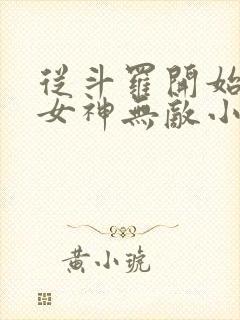 從斗羅開始
女神無敵小
黃小琥